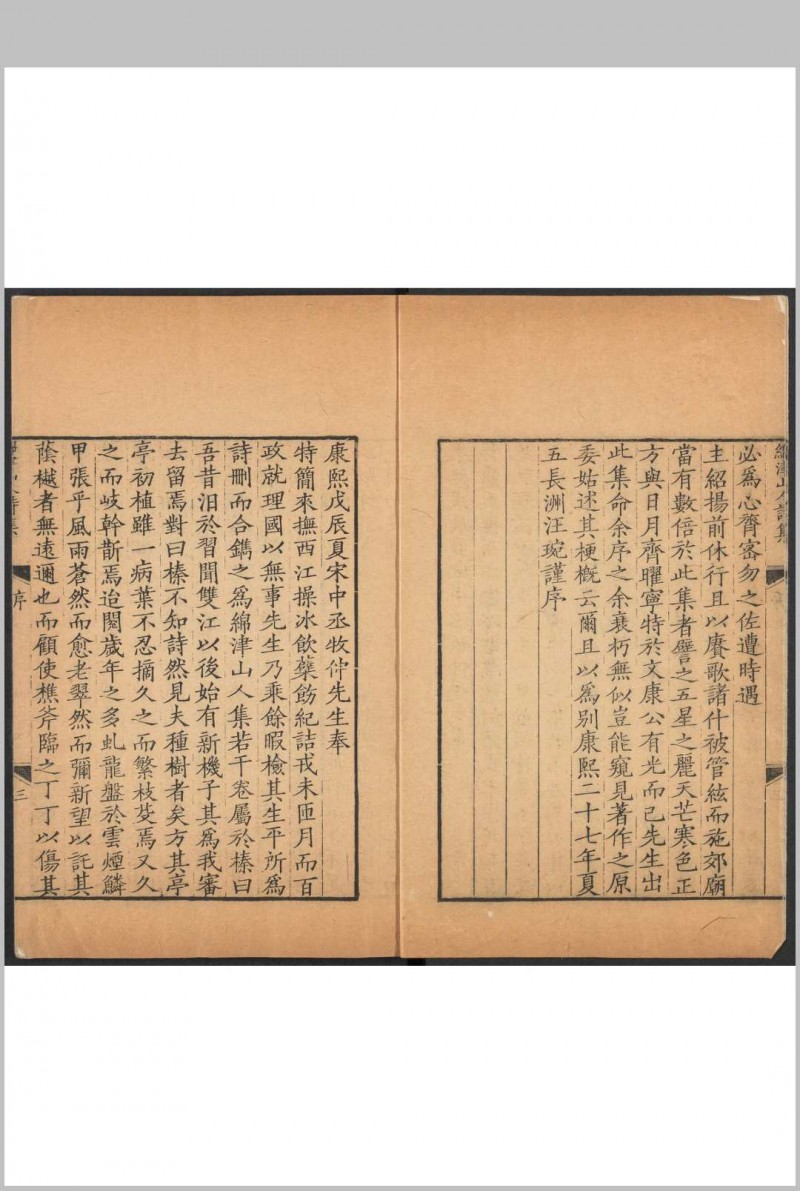 綿津山人詩集
必爲心膂宻勿之佐遭時遇
主紹揚前休行且以賡歌諸什被管絃而施郊廟
當有數倍於此集者譬之五星之麗天芒寒色正
方與日月齊曜寧特於文康公有光而已先生出
此集命余序之余衰朽無似豈能窺見著作之原
委姑述其梗槪云爾且以爲别康熙二十七年夏
五長洲汪琬謹序
康熙戊辰夏宋中丞牧仲先生奉
特簡來撫西江操冰飲蘖飭紀詰戎未匝月而百
政就理國以無事先生乃乘餘暇檢其生平所爲
詩刪而合鐫之爲綿津山人集若干卷屬於榛曰
吾昔汨於習聞雙江以後始有新機子其爲我審
去留焉對曰榛不知詩然見夫種樹者矣方其亭
亭初植雖一病葉不忍摘久之而繁枝芟焉又久
之而岐幹斯焉迨閱歲年之多虬龍盤於雲煙鱗
甲張乎風雨蒼然而愈老翠然而彌新望以託其
蔭樾者無遠邇也而顧使樵斧臨之丁丁以傷其
序
三